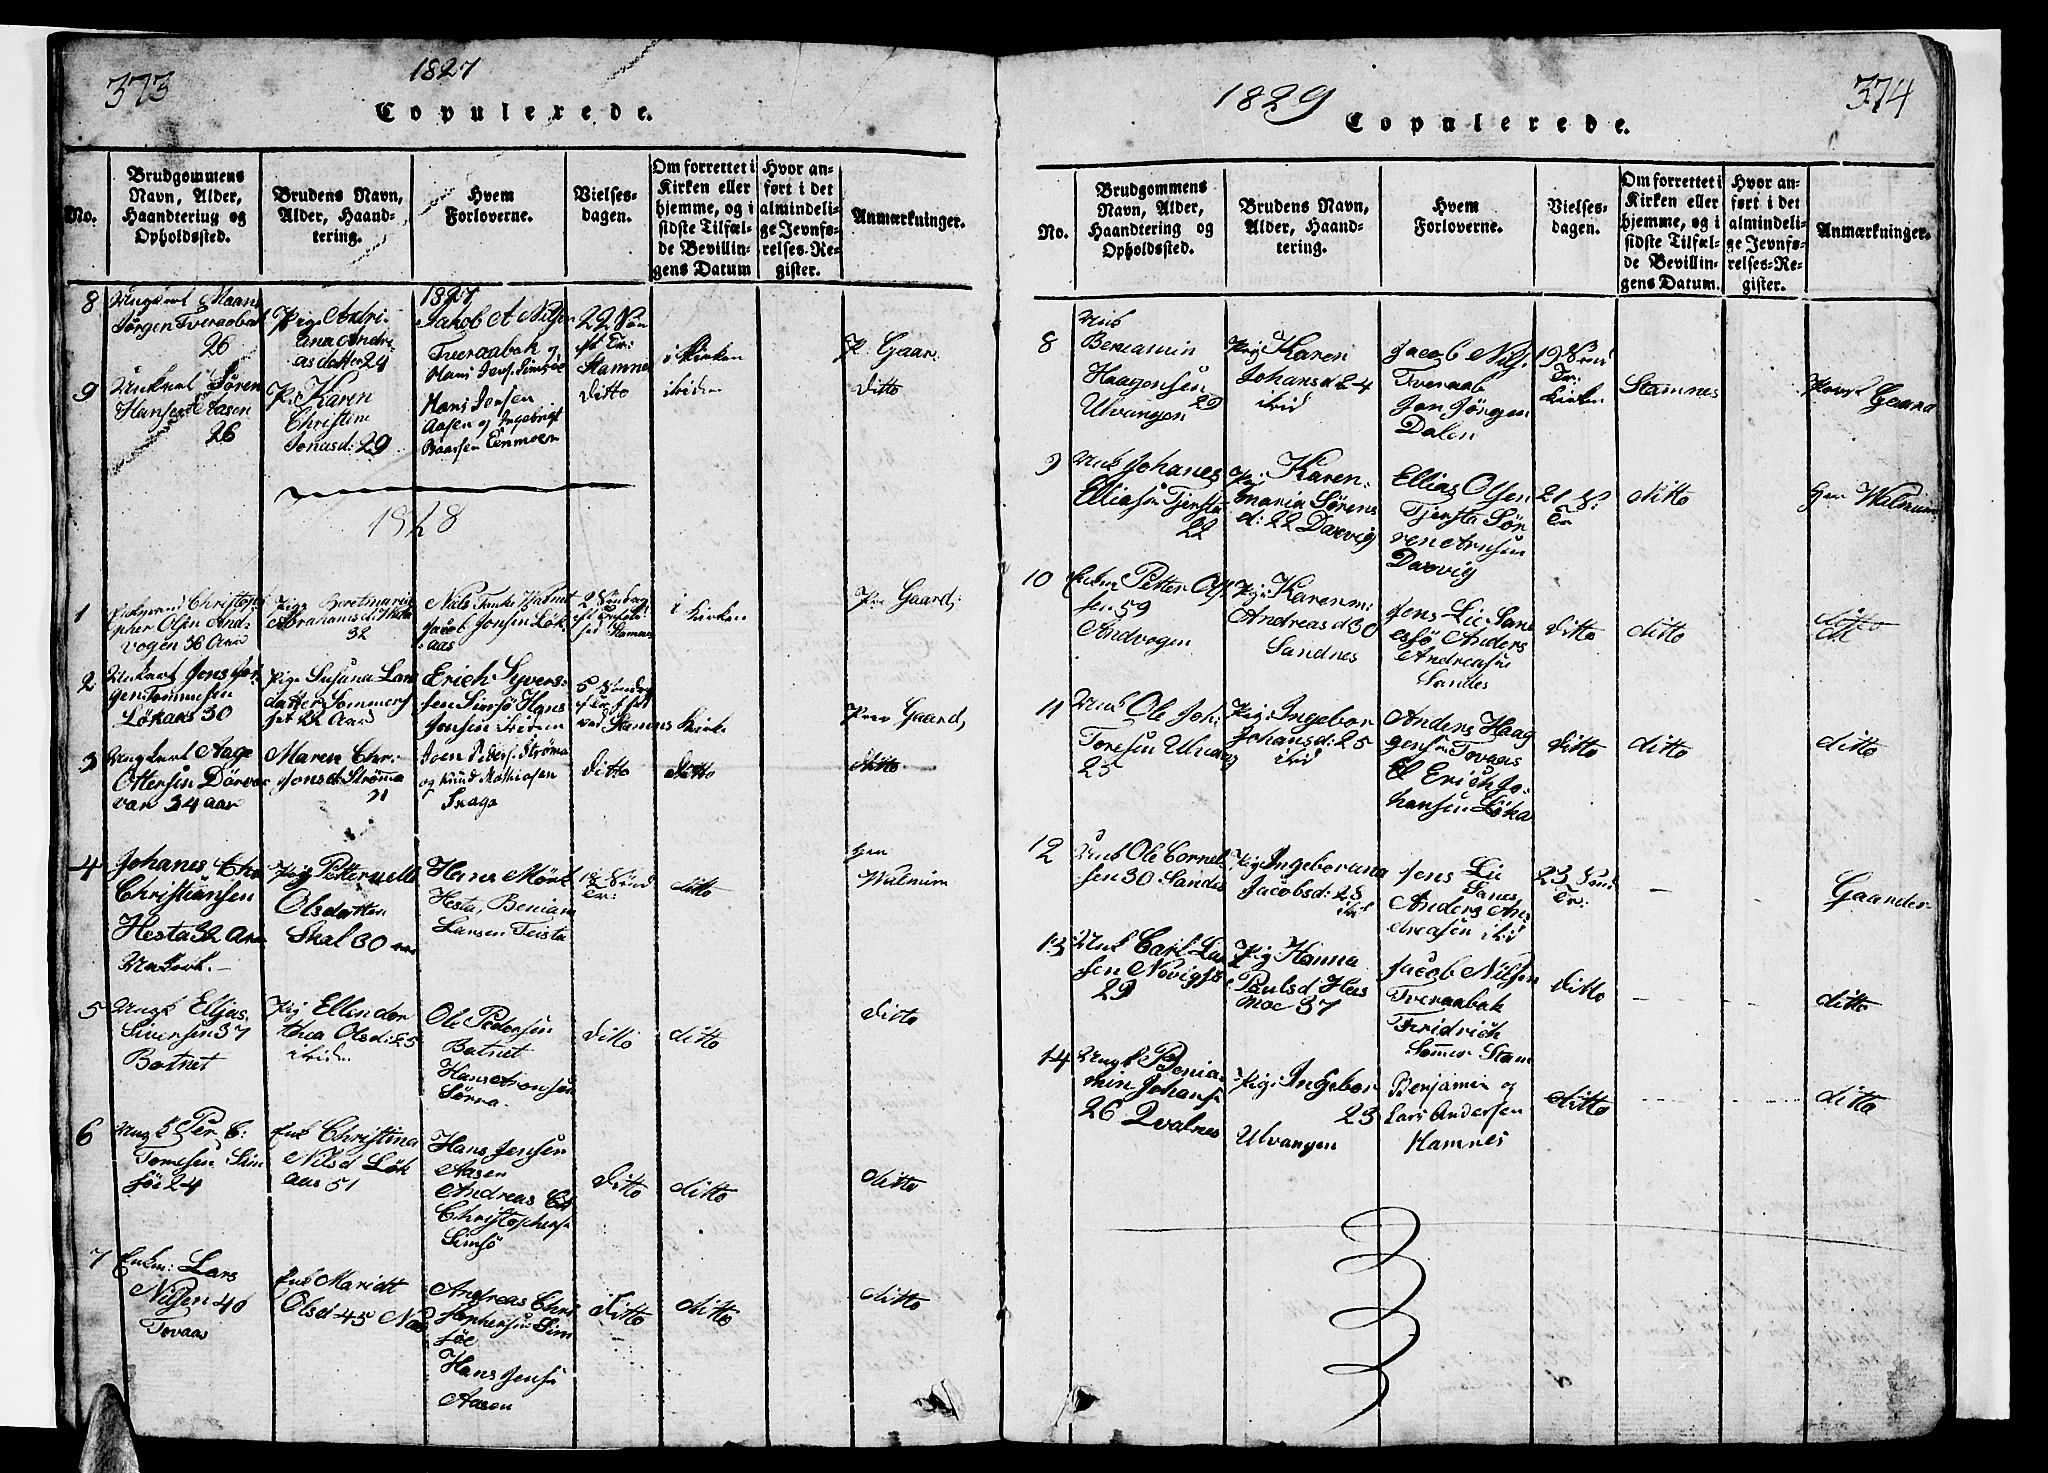 373
1827
Copulerede.
No.
Brudgommens Navn, Alder, Haandtering og Opholdssted.
Brudens Navn, Alder, Haandtering.
Hvem Forloverne.
Vielsesdagen.
Om forrettet i Kirken eller hjemme, og i sidste Tilfælde Bevillingens Datum
Hvor anført i det almindelige Jevnførelses-Register.
Anmærkninger.
8
Maans
Jørgen Tveraabak
26
Pige Andri-
ana Andri-
asdatter 24
1827
Jacob A Nilsen
Tveraabak og
Hans Jens. Simsøe
22 Søn
Tr:
Stamnes
i Kirken
P. Gaar:
9
Unkarl Søren
Hansen Aasen
26
P. Karen
Christine
Jonasd: 29
Hans Jensen
Aasen og Ingebrigt
Baarsen Einmoen
ditto
ibidem
ditto
1828
1
Enkemand Christop
pher Olsen And-
vogen 36 Aar
Pige Beretmarie
Abrahamsd:
32
Nils
Jacob Jensen Løk-
aas
2 Søndag
Stamnes
i Kirken
Pr Gaard:
2
Unkarl Jens Jør-
gen Tommesen
Løkaas 30
Pige Susana Lars
datter Sommer
set 22 Aar
Erich Syvers-
sen Simsø Hans
Jensen ibidem
5 Søndag
ved Stamnes
Kirk.
Prov Gaard,
3
Ungkarl Aage
Ottersen Dørvær
vær 34 aar
Maren Chr.
Jonsd: Strøma
21
Joen Peders. Strøma
og Knud Mathiasen
Skage
ditto
ditto
ditto
4
Johanes Chr
Christiansen
Hesta 32 Aar
Unkarl.
Pige Petternelle
Olsdatter
Skal 30
Hans Mørk
Hesta, Beniam
Larsen Teista
18 Sønd
Tr:
ditto
Hrr
Walnum
5
Ungk Elljas
Siversen 37
Botnet
Pig Ellendor
thea Olsd: 25
ibid.
Ole Pedersen
Botnet
Hans Aronsen
Sørra.
ditto
ditto
ditto
6
Ungk Per C:
Tomesen Sim
søe 24
Enk Christina
Nilsd Løk
aas 51
Hans Jensen
Aasen
Andreas
Christophers
Simsø
ditto
ditto
ditto
7
Enkm: Lars
Nilsen 40
Tovaas
Enk Maridt
Olsd 45
Andreas Chri
stophersen Sim
søe
Hans Jens
Aasen
ditto
ditto
ditto
1829
374
Copulerede.
No.
Brudgommens Navn, Alder, Haandtering og Opholdssted.
Brudens Navn, Alder, Haandtering.
Hvem Forloverne.
Vielsesdagen.
Om forrettet i Kirken eller hjemme, og i sidste Tilfælde Bevillingens Datum.
Hvor anført i det almindelige Jevnførelses-Register.
Anmærkninger.
8
Unk
Benjamin
Haagensen
Ulvangen 29
Pig Karen
Johansd 24
ibid
Jacob Nils.
Tveraab
Jon Jørgen
Dalen
19 Sønd
Tr:
Kirken
Stamnes
Prov. Gaard
9
Unk Johanes
Elliasen Tjersta
22
Pig: Karen
maria Sørens
d: 22 Darvig
Ellias Olsen
Tjersta Sør
ren Arnsen
Darvig
21 S:
Tr
ditto
Hrr Walnum
10
Enkm Petter Ol
sen 59
Andvogen
Pig: Karen m:
Andreas d 30
Sandnes
Jens Lie San
esø Anders
Andreasen
Sandes
ditto
ditto
ditto
11
Unk Ole Joh.
Toresen Ulvang
25
Pig: Ingebor
Johansd: 25
ibid
Anders Haag
gensen Tovaas
Erich Jo-
hansen Løka
ditto
ditto
ditto
12
Unk Ole Cornel-
sen 30 Sandes
Pig Ingeborana
Jacobsd: 28
ibid
Jens Lie
Sanes
Anders An
dreasen ibid
23 Sønd
Tr:
Gaarder
13
Unk Carl Lar
sen Novigsø
29
Pig Hanna
Paulsd Hus
moe 37
Jacob Nilsen
Tveraabak
Fridrich
Sommer Stam
ditto
ditto
14
Ungk Benia-
min Johans
26 Qvalnes
Pige Ingebor
23
Ulvangen
Benjamin og
Lars Andersen
Hamnes
ditto
ditto